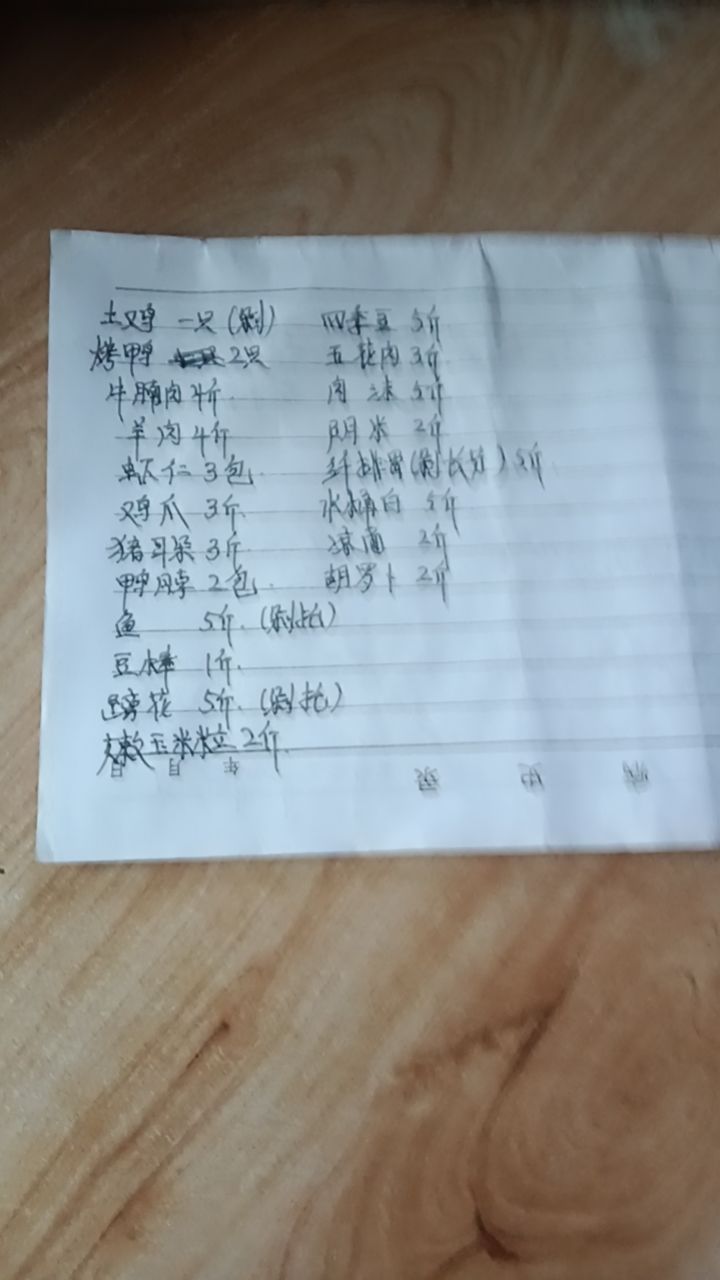 土鸡 一只(剁)
烤鸭 2只
牛腩肉 4斤
羊肉 4斤
虾仁 3包
鸡爪 3斤
猪耳朵 3斤
鸭脖 2包
鱼 5斤.(剁坨)
豆棒 1斤.
花 5斤.(剁坨)
嫩玉米粒 2斤.
四季豆 5斤
五花肉 3斤
肉沫 5斤
阴米 2斤
纤排骨(剁长条) 5斤
水 白 5斤
凉面 2斤
胡罗卜 2斤
年 月 日